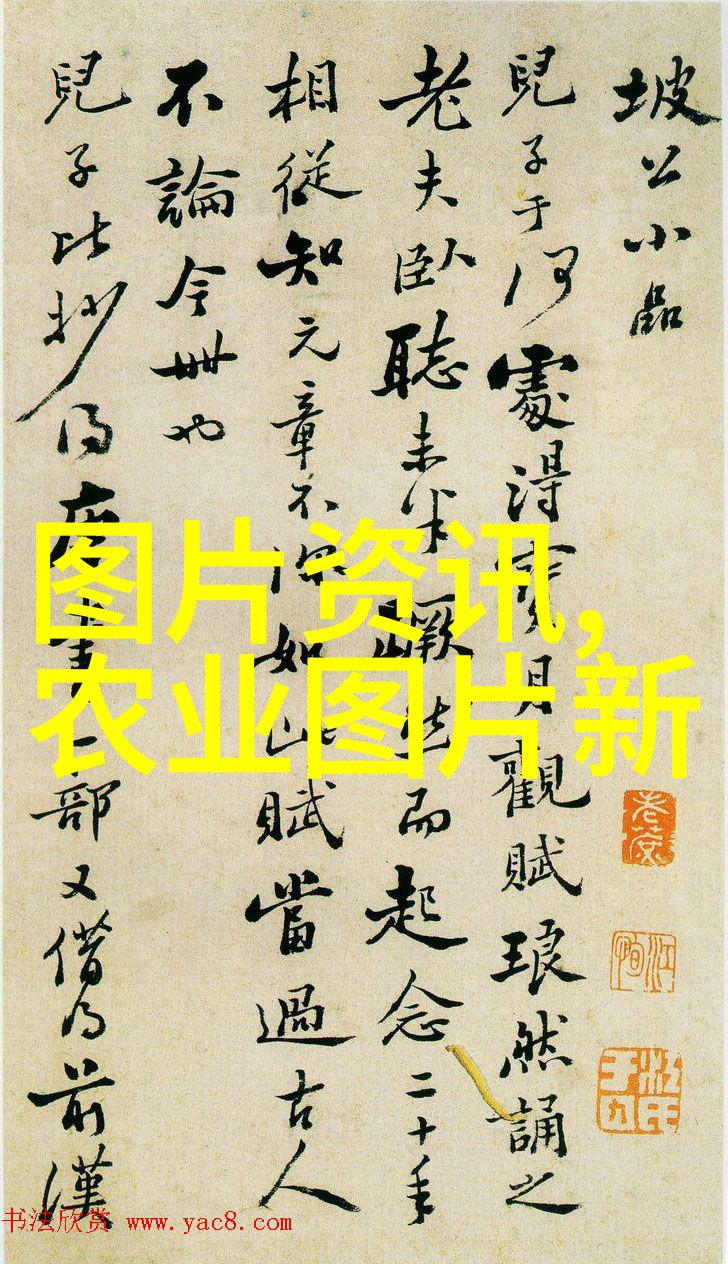 坡公小品
兒子于何處得寶月觀賦琅然誦之
老夫臥聽未半蹶然而起念二十年
相從知元章不深如此賦當過古人
不論今世也
兒子比抄得唐書一部又借得前漢
图片资讯,
农业图片新
老蓮
书法欣赏 www.yac8.com